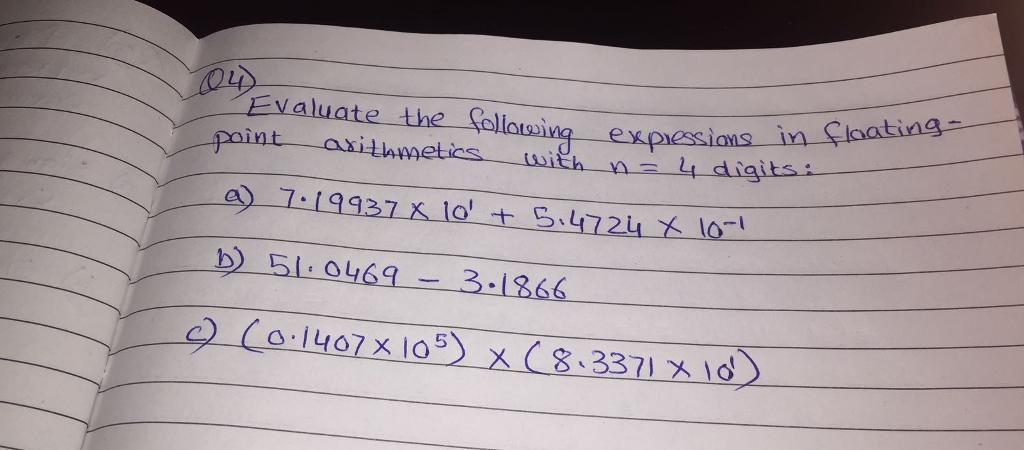 Q4)
Evaluate the following expressions in floating-
point arithmetics with n = 4 digits:
a) 7.19937 × 10¹ + 5.4724 × 10⁻¹
b) 51.0469 − 3.1866
c) (0.1407 × 10⁵) × (8.3371 × 10¹)